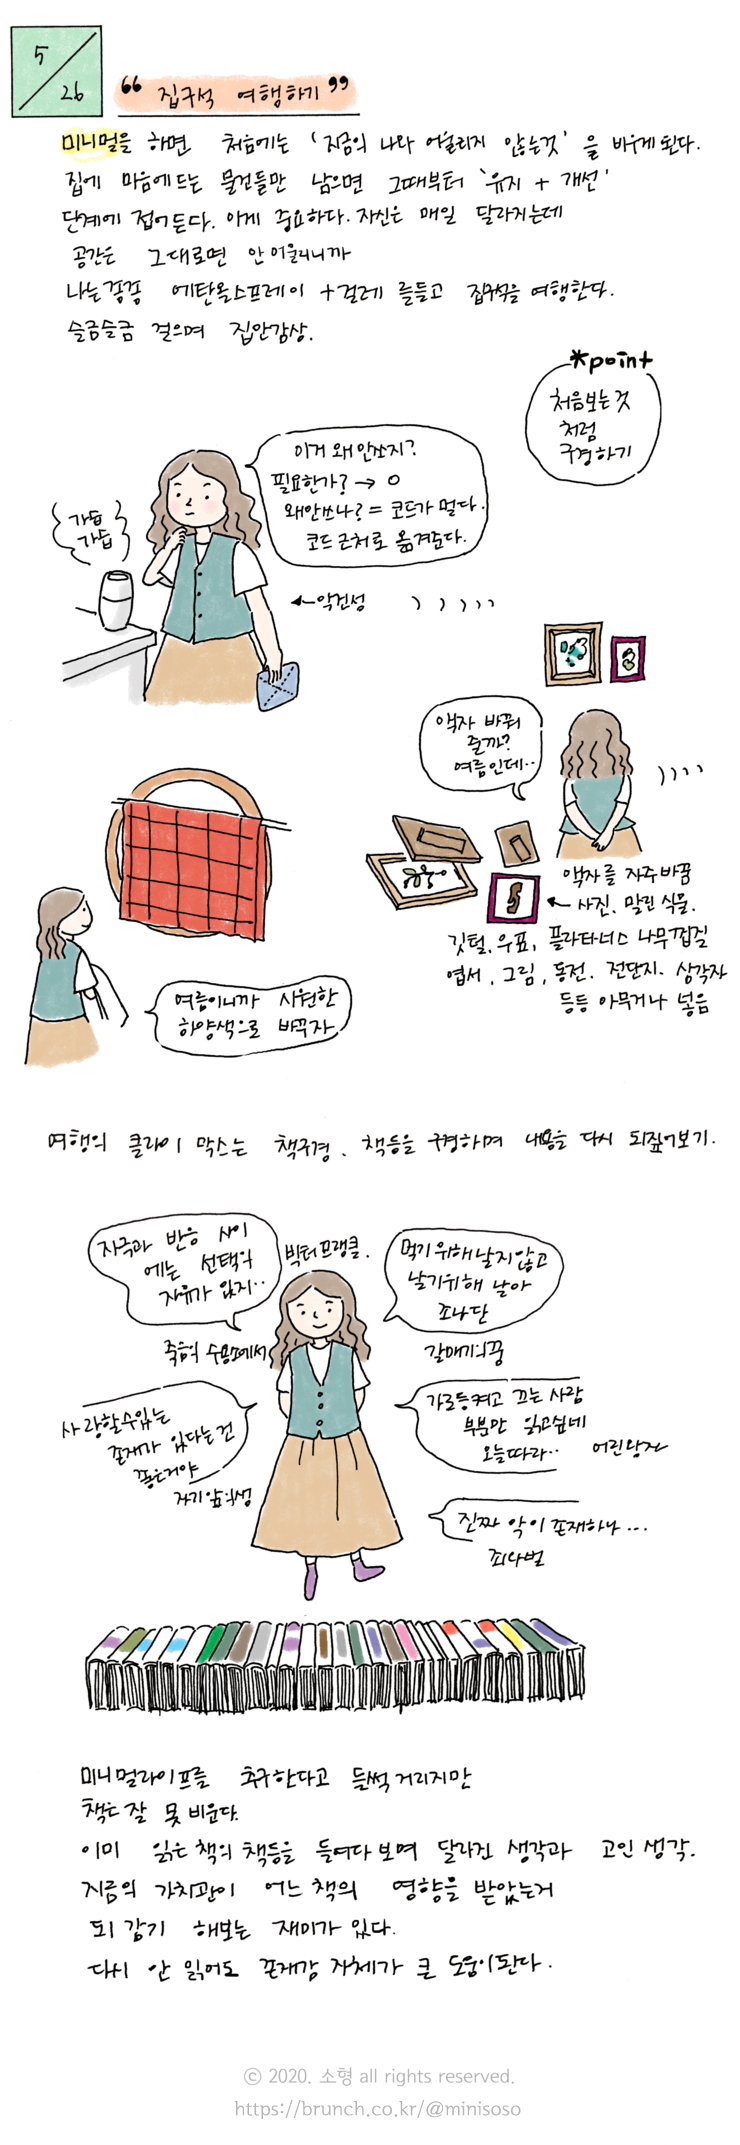 5/26
“ 집구석 여행하기 ”
미니멀을 하면 처음에는 '지금의 나와 어울리지 않는것' 을 비우게 된다.
집에 마음에드는 물건들만 남으면 그때부터 '유지 + 개선'
단계에 접어든다. 이게 중요하다. 자신은 매일 달라지는데
공간은 그대로면 안어울리니까
나는 종종 에탄올스프레이 + 걸레 를들고 집구석을 여행한다.
슬금슬금 걸으며 집안감상.
*point
처음보는것
처럼
구경하기
이거 왜 안쓰지?
필요한가? → O
왜안쓰나? = 코드가 멀다.
코드 근처로 옮겨준다.
가습
가습
←악건성
액자 바꿔
줄까?
여름인데..
액자를 자주바꿈
← 사진, 말린 식물.
깃털, 우표, 플라타너스 나무껍질
엽서, 그림, 동전. 전단지. 삼각자
등등 아무거나 넣음
여름이니까 시원한
하얀색으로 바꾸자
여행의 클라이 막스는 책구경. 책등을 구경하며 내용을 다시 되짚어보기.
자극과 반응 사이
에는 선택의
자유가 있지..
빅터프랭클.
죽음의 수용소에서
먹기위해 날지않고
날기위해 날아
조나단
갈매기의꿈
사랑할수있는
존재가 있다는건
좋은거야
자기앞의생
가로등켜고 끄는 사람
부분만 읽고싶네
오늘따라..
어린왕자
진짜 악이 존재하나...
죄와벌
미니멀라이프를 추구한다고 들썩거리지만
책은 잘 못 비운다.
이미 읽은 책의 책등을 들여다 보며 달라진 생각과 고인 생각.
지금의 가치관이 어느 책의 영향을 받았는지
되 감기 해보는 재미가 있다.
다시 안 읽어도 존재감 자체가 큰 도움이된다.
ⓒ 2020. 소형 all rights reserved.
https://brunch.co.kr/@minisoso